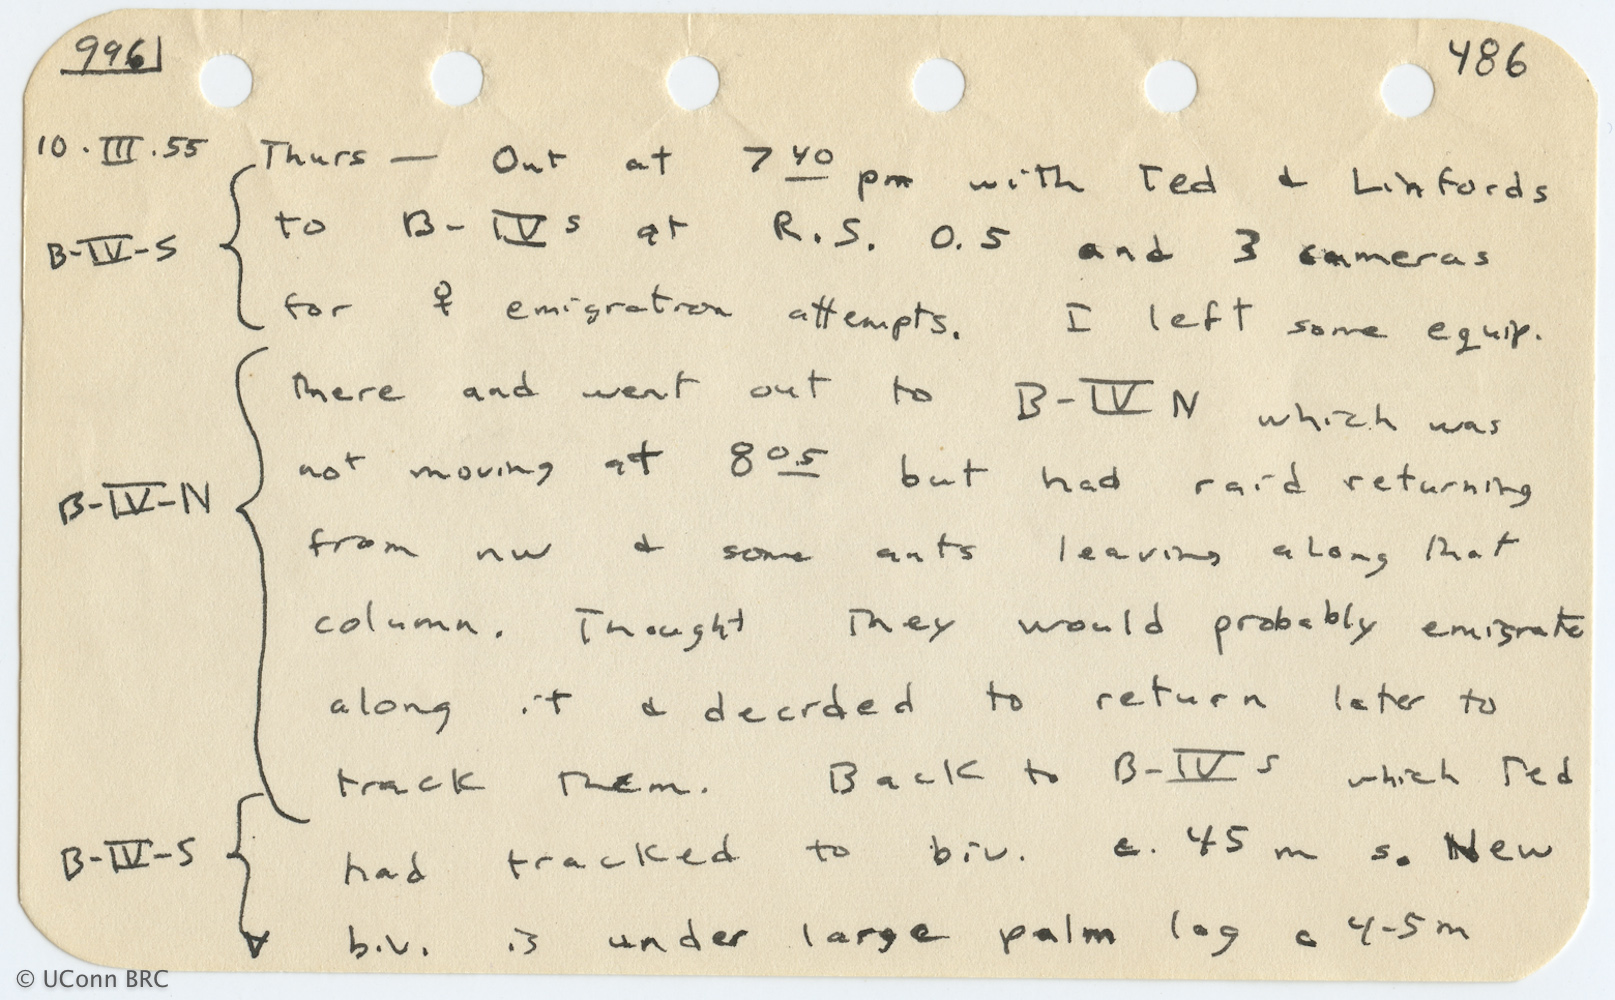 996 486
10.III.55 Thurs — Out at 7 40 pm with Ted & Linfords
B-IV-S to B-IV S at R.S. 0.5 and 3 cameras
for ♀ emigration attempts. I left some equip.
there and went out to B-IV N which was
not moving at 8 05 but had raid returning
B-IV-N from nw & some ants leaving along that
column. Thought they would probably emigrate
along it & decided to return later to
track them. Back to B-IV S which Ted
B-IV-S had tracked to biv. c. 45 m s. New
biv. is under large palm log c 4-5m
© UConn BRC